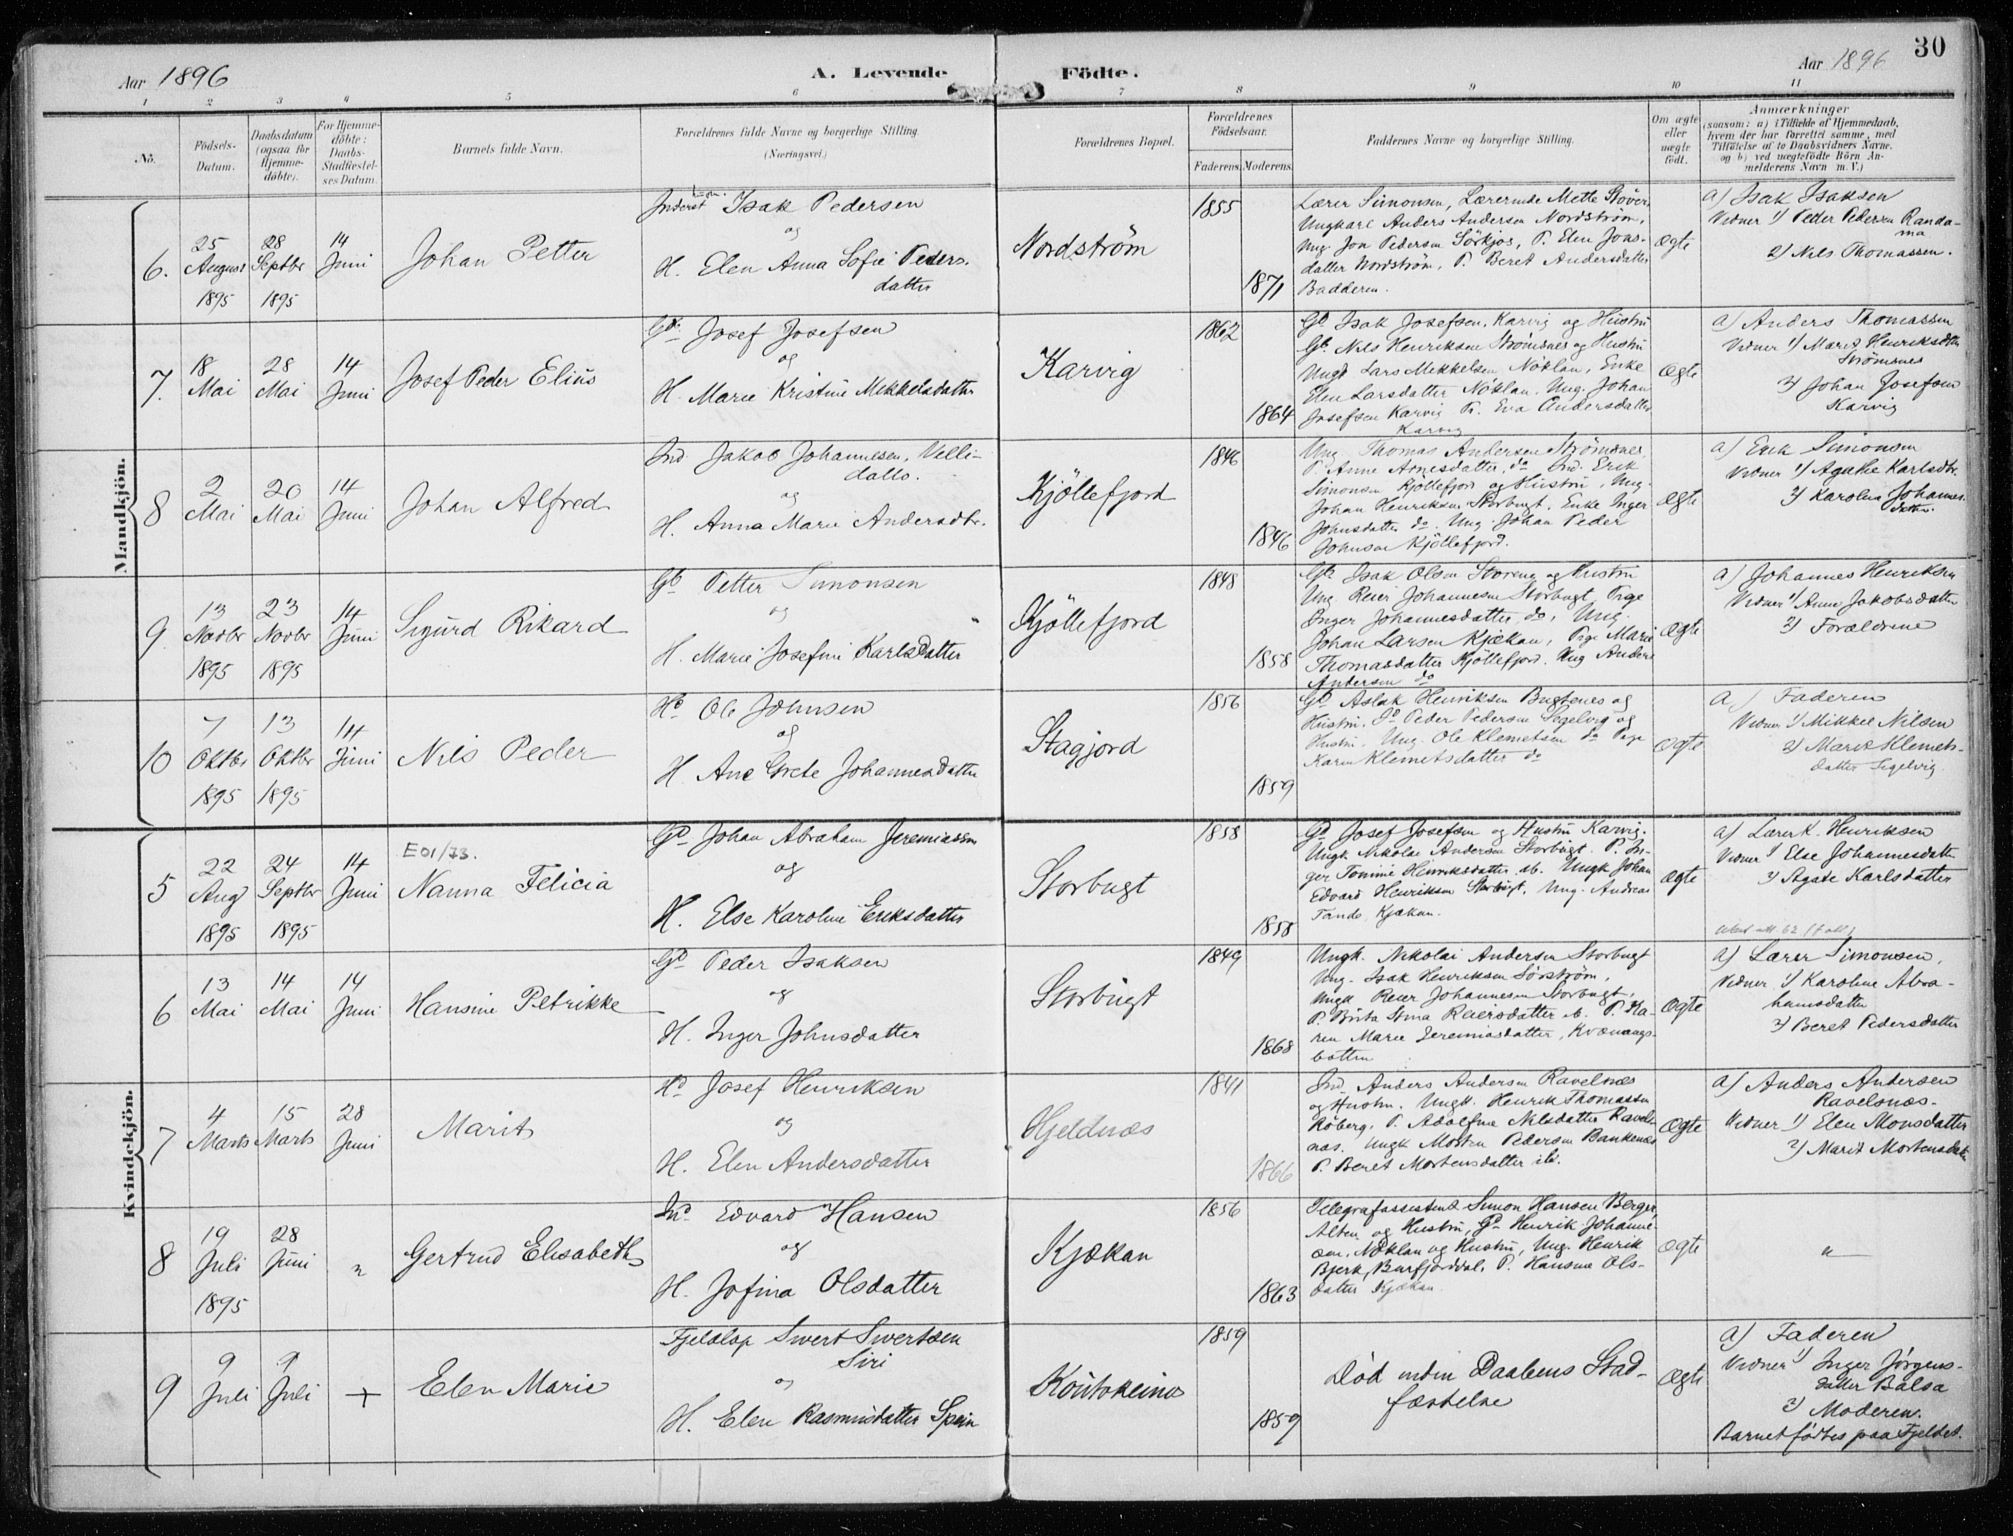 Aar 1896
A. Levende
Födte.
Aar 1896
30
1 2 3 4 5 6 7 8 9 10 11
No.
Födsels-
Datum.
Daabsdatum
(ogsaa for
Hjemme-
döbte).
For Hjemme-
döbte:
Daabs-
Stadfestel-
ses Datum.
Barnets fulde Navn.
Forældrenes fulde Navne og borgerlige Stilling.
(Næringsvei.)
Forældrenes Bopæl.
Forældrenes
Födselsaar.
Faderens.
Moderens.
Faddernes Navne og borgerlige Stilling.
Om ægte
eller
uægte
födt.
Anmærkninger
(saasom: a) i Tilfælde af Hjemmedaab,
hvem der har forrettet samme, med
Tilföielse af to Daabsvidners Navne.
og b) ved uægtefödte Börn An-
melderens Navn m. V.)
Mandkjön.
6.
25
August
1895
28
Septbr
1895
14
Juni
Johan Petter
Inderst Isak Pedersen
og
H. Elen Anna Sofie Peders-
datter
Nordström
1855
1871
Lærer Simonsen, Lærerinde Mette Stöver,
Ungkarl Anders Andersen Nordström,
Ung. Jon Pedersen Sörkjos, P. Elen Jons-
datter Nordström, P. Beret Andersdatter
Badderen.
Ægte
a) Isak Isaksen
Vidner 1) Peder Pedersen Randa-
ma
2) Nils Thomassen.
7.
18
Mai
28
Mai
14
Juni
Josef Peder Elius
Gb. Josef Josefsen
og
H. Marie Kristine Mikkelsdatter
Karvig
1862
1864
Gb Isak Josefsen, Karvig og Hustru
Gb. Nils Henriksen Strömsnes og Hustru
Ungk Lars Mikkelsen Nöklan, Enke
Elen Larsdatter Nöklan. Ung. Johan
Josefsen Karvig P. Eva Andersdatter
Karvig
Ægte
a) Anders Thomassen
Vidner 1) Maret Henriksdtr
Strömsnes
2) Johan Josefsen
Karvig
8
2
Mai
20
Mai
14
Juni
Johan Alfred
Ind. Jakob Johannesen, Villi-
dalto.
og
H. Anna Marie Andersdtr.
Kjöllefjord
1846
1846
Ung Thomas Andersen Strömsnes,
P. Anne Arnesdatter, do Ind. Erik
Simonsen Kjöllefjord og Hustru, Ung.
Johan Henriksen Storbugt, Enke Inger
Johnsdatter do. Ung. Johan Peder
Johnsen Kjöllefjord.
Ægte
a) Erik Simonsen
Vidner 1) Agathe Karlsdtr.
2) Karolina Johannes-
datter.
9.
13
Novbr
1895
23
Novbr
1895
14
Juni
Sigurd Rikard
Gb Petter Simonsen
og
H. Marie Josefine Karlsdatter
Kjöllefjord
1848
1858
Gb. Isak Olsen Storeng og Hustru
Ung Reier Johannesen Storbugt, Pige
Inger Johannesdatter, do, Ung.
Johan Larsen Kjækan, Pige Marie
Thomasdatter Kjöllefjord. Ung Anders
Andersen do
Ægte
a) Johannes Henriksen
Vidner 1) Anne Jakobsdatter
2) Forældrene
10
7
Oktbr
1895
13
Oktbr
1895
14
Juni
Nils Peder
Ole Johnsen
og
H. Ane Grete Johannesdatter
Stagjord
1856
1859
Gb Aslak Henriksen Bugtenes og
Hustru. Do Peder Pedersen Segelvig og
Hustru. Ung. Ole Klemetsen do Pige
Karen Klemetsdatter do
Ægte
a) Faderen
Vidner 1) Mikkel Nilsen
2) Marit Klemets-
datter Segelvig.
Kvindekjön.
5
22
Aug
1895
24
Septbr
1895
14
Juni
E01/73.
Nanna Felicia
Gb Johan Abraham Jeremiassen
og
H. Else Karoline Eriksdatter
Storbugt
1858
1858
Gb Josef Josefsen og Hustru Karvig.
Ungk Nikolai Andersen Storbugt. P. In-
ger Tomine Henriksdatter ib. Ungk Johan
Edvard Henriksen Storbugt, Ung. Andreas
Tande, Kjækan.
Ægte
a) Lærer K. Henriksen
Vidner 1) Else Johannesdatter
2) Agate Karlsdatter
6
13
Mai
14
Mai
14
Juni
Hansine Petrikke
Gb Peder Isaksen
og
H. Inger Johnsdatter
Storbugt
1849
1868
Ungk. Nikolai Andersen Storbugt
Ung. Isak Henriksen Sörström,
Ungk Reier Johannesen Storbugt,
P. Brita Stina Reiersdatter ib. P. Ka-
ren Marie Jeremiasdatter, Kvænangs-
botten
Ægte
a) Lærer Simonsen,
Vidner 1) Karoline Abra-
hamsdatter
2) Beret Pedersdatter
7
4
Marts
15
Marts
28
Juni
Marit
Josef Henriksen
og
H. Elen Andersdatter
Hjeldnæs
1841
1866
Ind. Anders Andersen Ravelsnæs
og Hustru. Ungk. Henrik Thomassen
Röberg, P. Adolfine Nilsdatter Ravels-
næs, Ungk Morten Pedersen Bankenæs
P. Beret Mortensdatter ib.
Ægte
a) Anders Andersen
Ravelsnæs.
Vidner 1) Elen Monsdatter
2) Marit Mortensdatter
8
19
Juli
1895
28
Juni
"
Gertrud Elisabeth
Ind Edvard Hansen
og
H. Jofina Olsdatter
Kjækan
1856
1863
Telegrafassistent Simon Hansen Berger,
Alten og Hustru, Gb Henrik Johanne-
sen, Nöklan og Hustru, Ung. Henrik
Bjerk, Burfjorddal, P. Hansine Ols-
datter Kjækan.
Ægte
"
9
9
Juli
9
Juli
+
Elen Marie
Fjeldlap Sivert Sivertsen
Siri
og
H. Elen Rasmusdatter Spein
Koutokeino
1859
1859
Död inden Daabens Stad-
fæstelse
Ægte
a) Faderen
Vidner 1) Inger Jörgens-
datter Balsa
2) Moderen.
Barnet födtes paa Fjeldet.